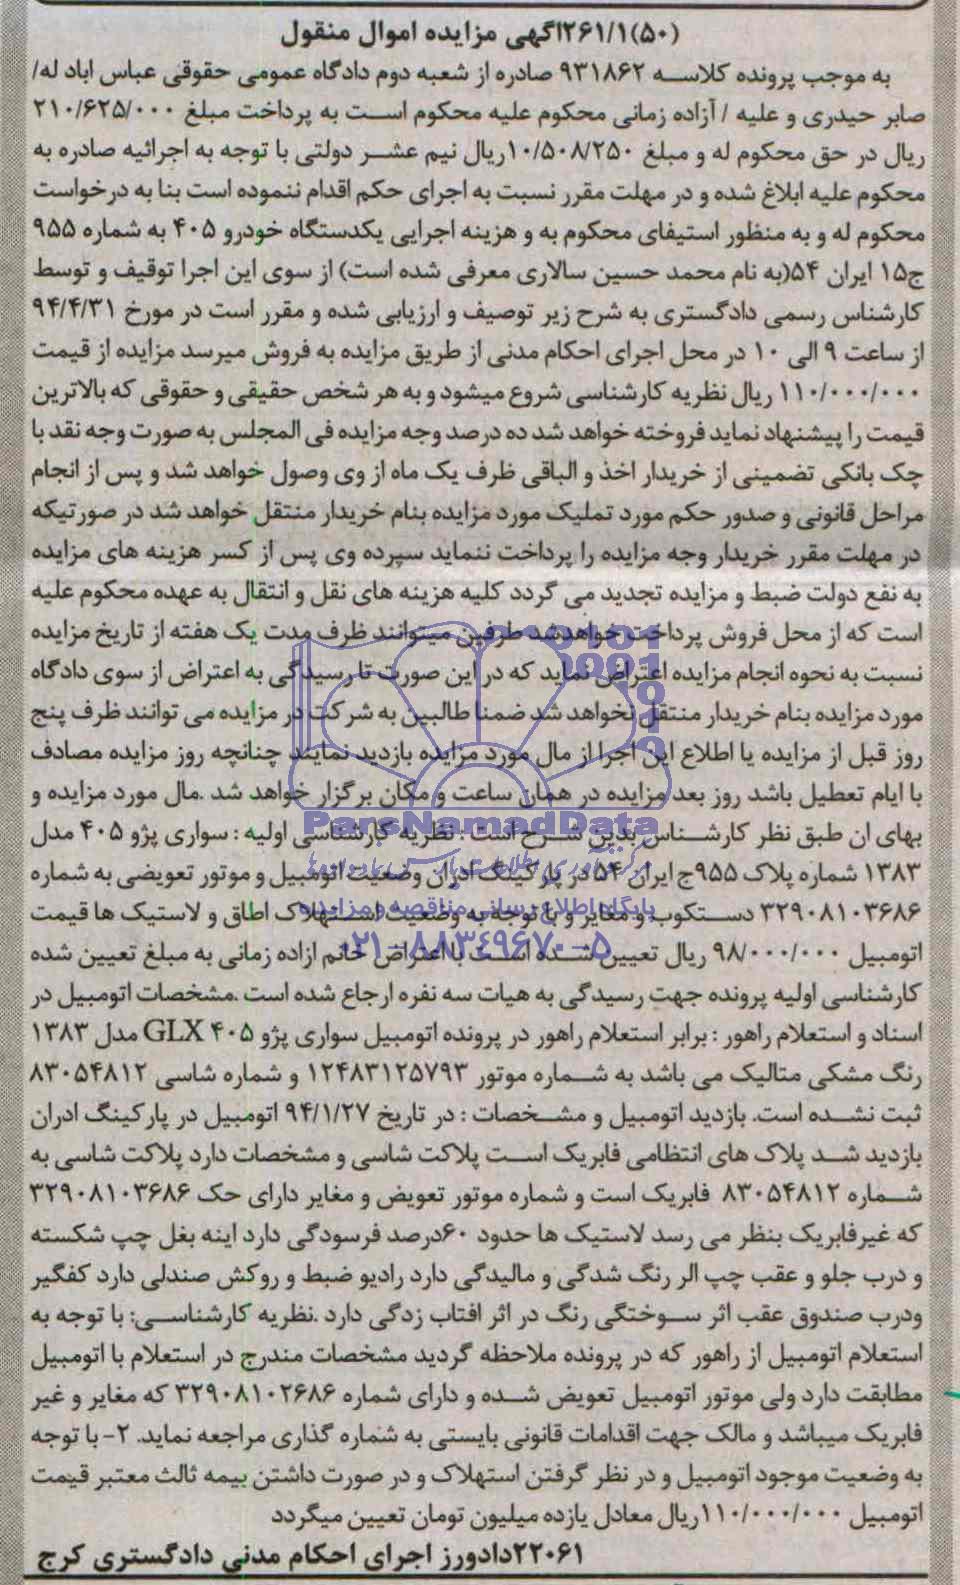 (۵۰)۲۶۱/۱آگهی مزایده اموال منقول
به موجب پرونده کلاسه ۹۳۱۸۶۲ صادره از شعبه دوم دادگاه عمومی حقوقی عباس اباد له/
صابر حیدری و علیه / آزاده زمانی محکوم علیه محکوم است به پرداخت مبلغ ۲۱۰/۶۲۵/۰۰۰
ریال در حق محکوم له و مبلغ ۱۰/۵۰۸/۲۵۰ریال نیم عشر دولتی با توجه به اجرائیه صادره به
محکوم علیه ابلاغ شده و در مهلت مقرر نسبت به اجرای حکم اقدام ننموده است بنا به درخواست
محکوم له و به منظور استیفای محکوم به و هزینه اجرایی یکدستگاه خودرو ۴۰۵ به شماره ۹۵۵
ج۱۵ ایران ۵۴(به نام محمد حسین سالاری معرفی شده است) از سوی این اجرا توقیف و توسط
کارشناس رسمی دادگستری به شرح زیر توصیف و ارزیابی شده و مقرر است در مورخ ۹۴/۴/۳۱
از ساعت ۹ الی ۱۰ در محل اجرای احکام مدنی از طریق مزایده به فروش میرسد مزایده از قیمت
۱۱۰/۰۰۰/۰۰۰ ریال نظریه کارشناسی شروع میشود و به هر شخص حقیقی و حقوقی که بالاترین
قیمت را پیشنهاد نماید فروخته خواهد شد ده درصد وجه مزایده فی المجلس به صورت وجه نقد با
چک بانکی تضمینی از خریدار اخذ و الباقی ظرف یک ماه از وی وصول خواهد شد و پس از انجام
مراحل قانونی و صدور حکم مورد تملیک مورد مزایده بنام خریدار منتقل خواهد شد در صورتیکه
در مهلت مقرر خریدار وجه مزایده را پرداخت ننماید سپرده وی پس از کسر هزینه های مزایده
به نفع دولت ضبط و مزایده تجدید می گردد کلیه هزینه های نقل و انتقال به عهده محکوم علیه
است که از محل فروش پرداخت خواهدشد طرفین میتوانند ظرف مدت یک هفته از تاریخ مزایده
نسبت به نحوه انجام مزایده اعتراض نماید که در این صورت تا رسیدگی به اعتراض از سوی دادگاه
مورد مزایده بنام خریدار منتقل نخواهد شد ضمنا طالبین به شرکت در مزایده می توانند ظرف پنج
روز قبل از مزایده یا اطلاع این اجرا از مال مورد مزایده بازدید نمایند چنانچه روز مزایده مصادف
با ایام تعطیل باشد روز بعد مزایده در همان ساعت و مکان برگزار خواهد شد .مال مورد مزایده و
ParsNamadData
بهای ان طبق نظر کارشناس بدین شرح است : نظریه کارشناسی اولیه : سواری پژو ۴۰۵ مدل
۱۳۸۳ شماره پلاک ۹۵۵ج ایران ۵۴ در پارکینگ ادران وضعیت اتومبیل و موتور تعویضی به شماره
پایگاه اطلاع رسانی مناقصه و مزایده
۳۲۹۰۸۱۰۳۶۸۶ دستکوب و مغایر و با توجه به وضعیت استهلاک اطاق و لاستیک ها قیمت
۰۲۱-۸۸۳۴۹۶۷۰-۵
اتومبیل ۹۸/۰۰۰/۰۰۰ ریال تعیین شده است با اعتراض خانم ازاده زمانی به مبلغ تعیین شده
کارشناسی اولیه پرونده جهت رسیدگی به هیات سه نفره ارجاع شده است .مشخصات اتومبیل در
اسناد و استعلام راهور : برابر استعلام راهور در پرونده اتومبیل سواری پژو ۴۰۵ GLX مدل ۱۳۸۳
رنگ مشکی متالیک می باشد به شماره موتور ۱۲۴۸۳۱۲۵۷۹۳ و شماره شاسی ۸۳۰۵۴۸۱۲
ثبت نشده است. بازدید اتومبیل و مشخصات : در تاریخ ۹۴/۱/۲۷ اتومبیل در پارکینگ ادران
بازدید شد پلاک های انتظامی فابریک است پلاکت شاسی و مشخصات دارد پلاکت شاسی به
شماره ۸۳۰۵۴۸۱۲ فابریک است و شماره موتور تعویض و مغایر دارای حک ۳۲۹۰۸۱۰۳۶۸۶
که غیرفابریک بنظر می رسد لاستیک ها حدود ۶۰درصد فرسودگی دارد اینه بغل چپ شکسته
و درب جلو و عقب چپ الر رنگ شدگی و مالیدگی دارد رادیو ضبط و روکش صندلی دارد کفگیر
ودرب صندوق عقب اثر سوختگی رنگ در اثر افتاب زدگی دارد .نظریه کارشناسی: با توجه به
استعلام اتومبیل از راهور که در پرونده ملاحظه گردید مشخصات مندرج در استعلام با اتومبیل
مطابقت دارد ولی موتور اتومبیل تعویض شده و دارای شماره ۳۲۹۰۸۱۰۲۶۸۶ که مغایر و غیر
فابریک میباشد و مالک جهت اقدامات قانونی بایستی به شماره گذاری مراجعه نماید. ۲- با توجه
به وضعیت موجود اتومبیل و در نظر گرفتن استهلاک و در صورت داشتن بیمه ثالث معتبر قیمت
اتومبیل ۱۱۰/۰۰۰/۰۰۰ریال معادل یازده میلیون تومان تعیین میگردد
۲۲۰۶۱دادورز اجرای احکام مدنی دادگستری کرج